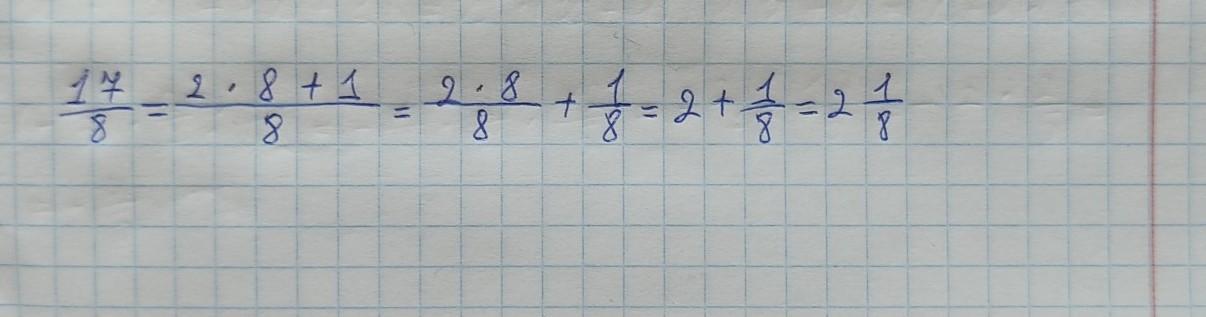 17/8 = (2 · 8 + 1)/8 = (2 · 8)/8 + 1/8 = 2 + 1/8 = 2 1/8